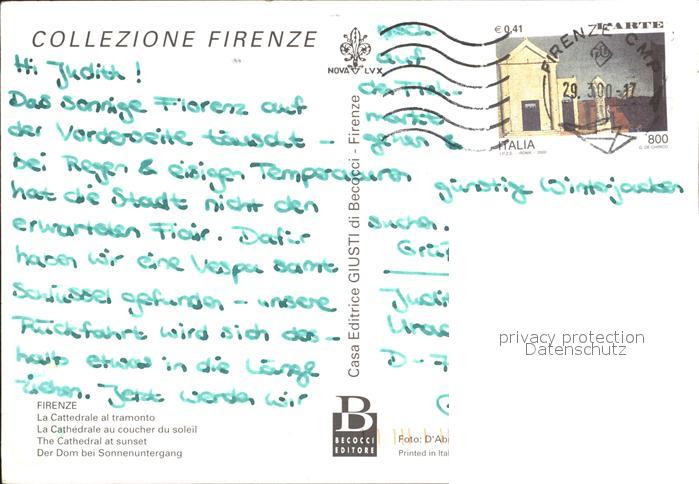 COLLEZIONE FIRENZE
NOVA LVX
Hi Judith!
Das sonnige Florenz auf
der Vorderseite täuscht -
bei Regen & eisigen Temperaturen
hat die Stadt nicht den
erwarteten Flair. Dafür
haben wir eine Vespa samt
Schlüssel gefunden - unsere
Rückfahrt wird sich des-
halb etwas in die Länge
ziehen. Jetzt werden wir
noch
auf
markt
günstig Winterjacken
suchen.
Judit
D - 7
FIRENZE
La Cattedrale al tramonto
La Cathédrale au coucher du soleil
The Cathedral at sunset
Der Dom bei Sonnenuntergang
Casa Editrice GIUSTI di Becocci - Firenze
B
BECOCCI
EDITORE
Foto: D'Abi
Printed in Ital
€ 0,41
L'ARTE
FIRENZE C.M.
29.3.00-17
ITALIA
800
I.P.Z.S. - ROMA - 2000
G. DE CHIRICO
privacy protection
Datenschutz